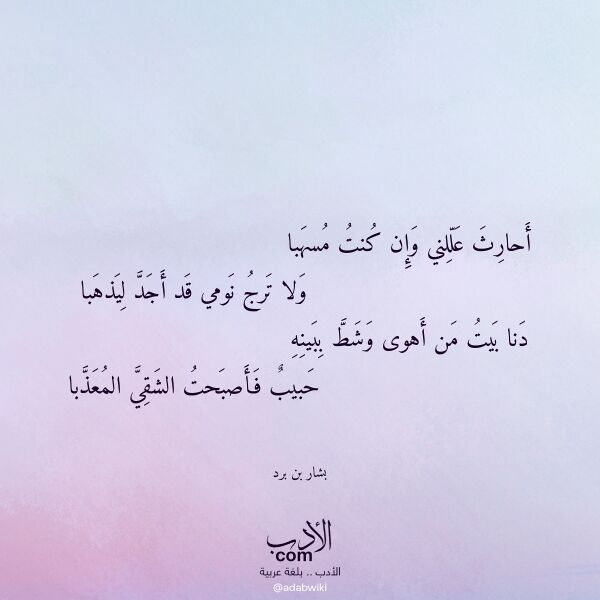 أَحارِثَ عَلِّلني وَإِن كُنتُ مُسهَبا
وَلا تَرجُ نَومي قَد أَجَدَّ لِيَذهَبا
دَنا بَيتُ مَن أَهوى وَشَطَّ بِبَينِهِ
حَبيبٌ فَأَصبَحتُ الشَقِيَّ المُعَذَّبا
بشار بن برد
الأدب
.com
الأدب .. بلغة عربية
@adabwiki